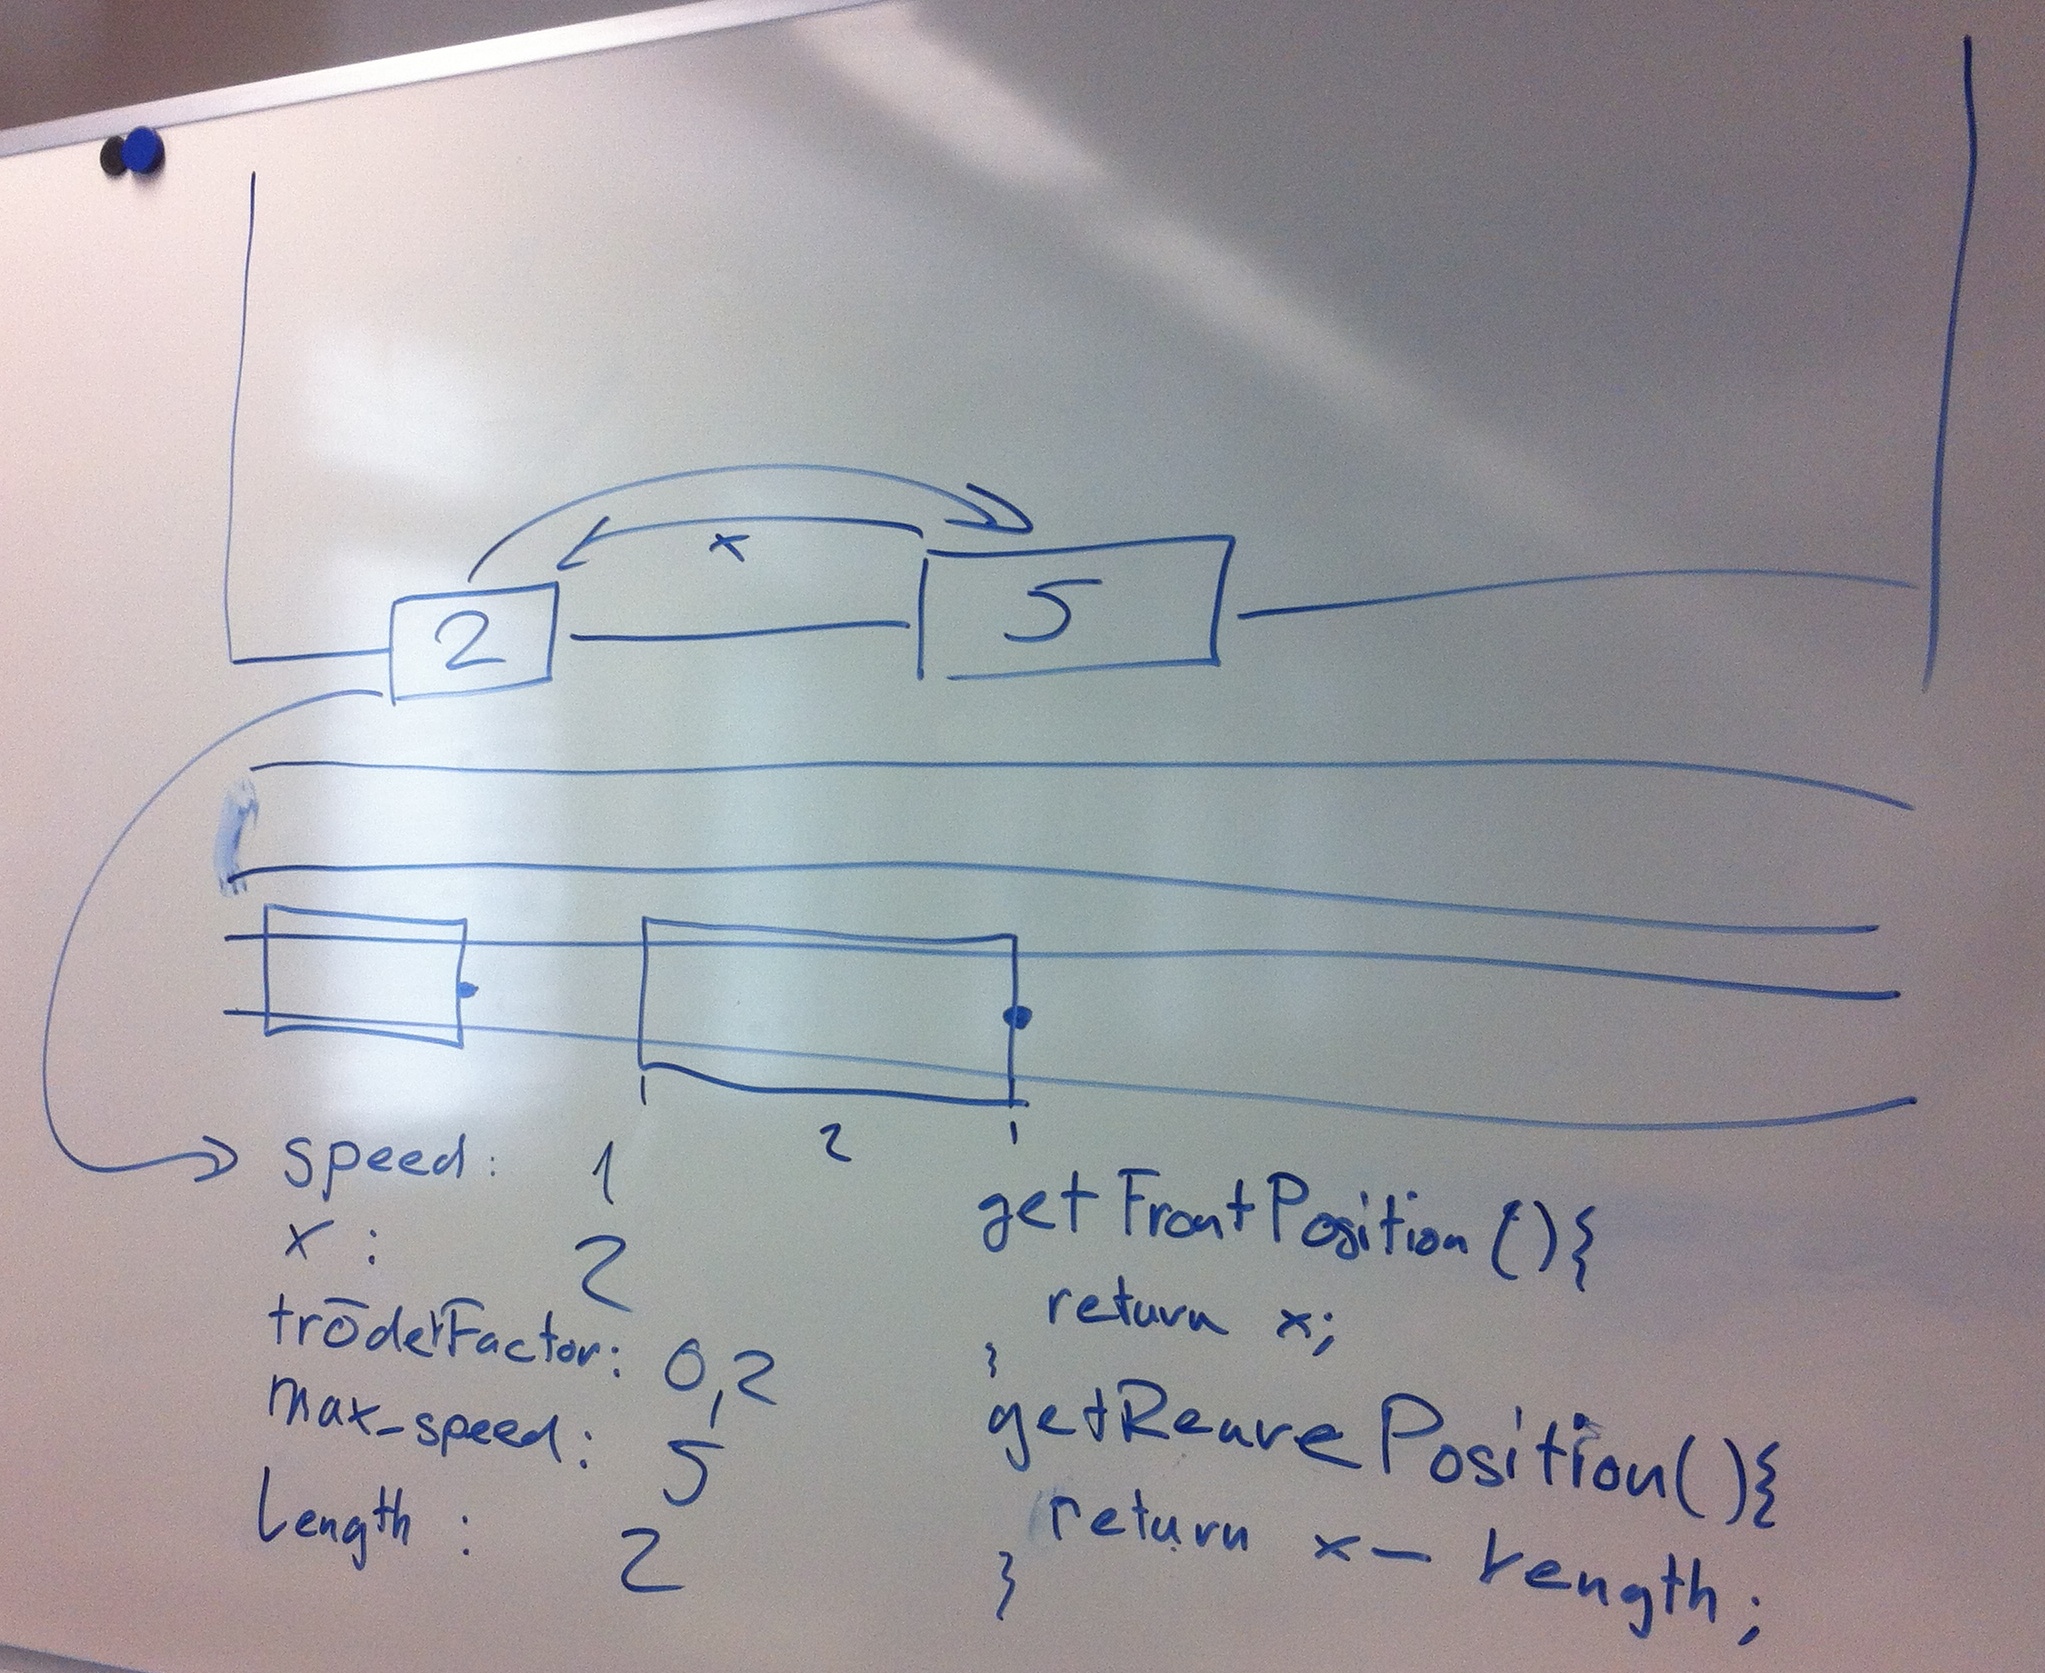 x
2 5
2
speed: 1
x: 2
trödelFactor: 0,2
max_speed: 5
Length: 2
getFrontPosition(){
return x;
}
getRearePosition(){
return x - Length;
}